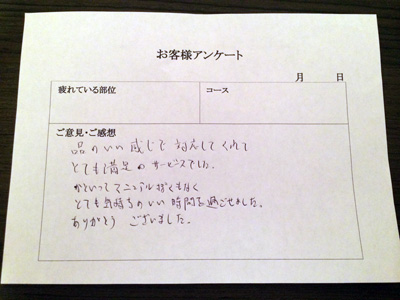 お客様アンケート
月 日
疲れている部位 コース
ご意見・ご感想
品のいい感じで対応してくれて
とても満足のサービスでした。
かといってマニュアルぽくもなく
とても気持ちのいい時間を過ごせました。
ありがとうございました。